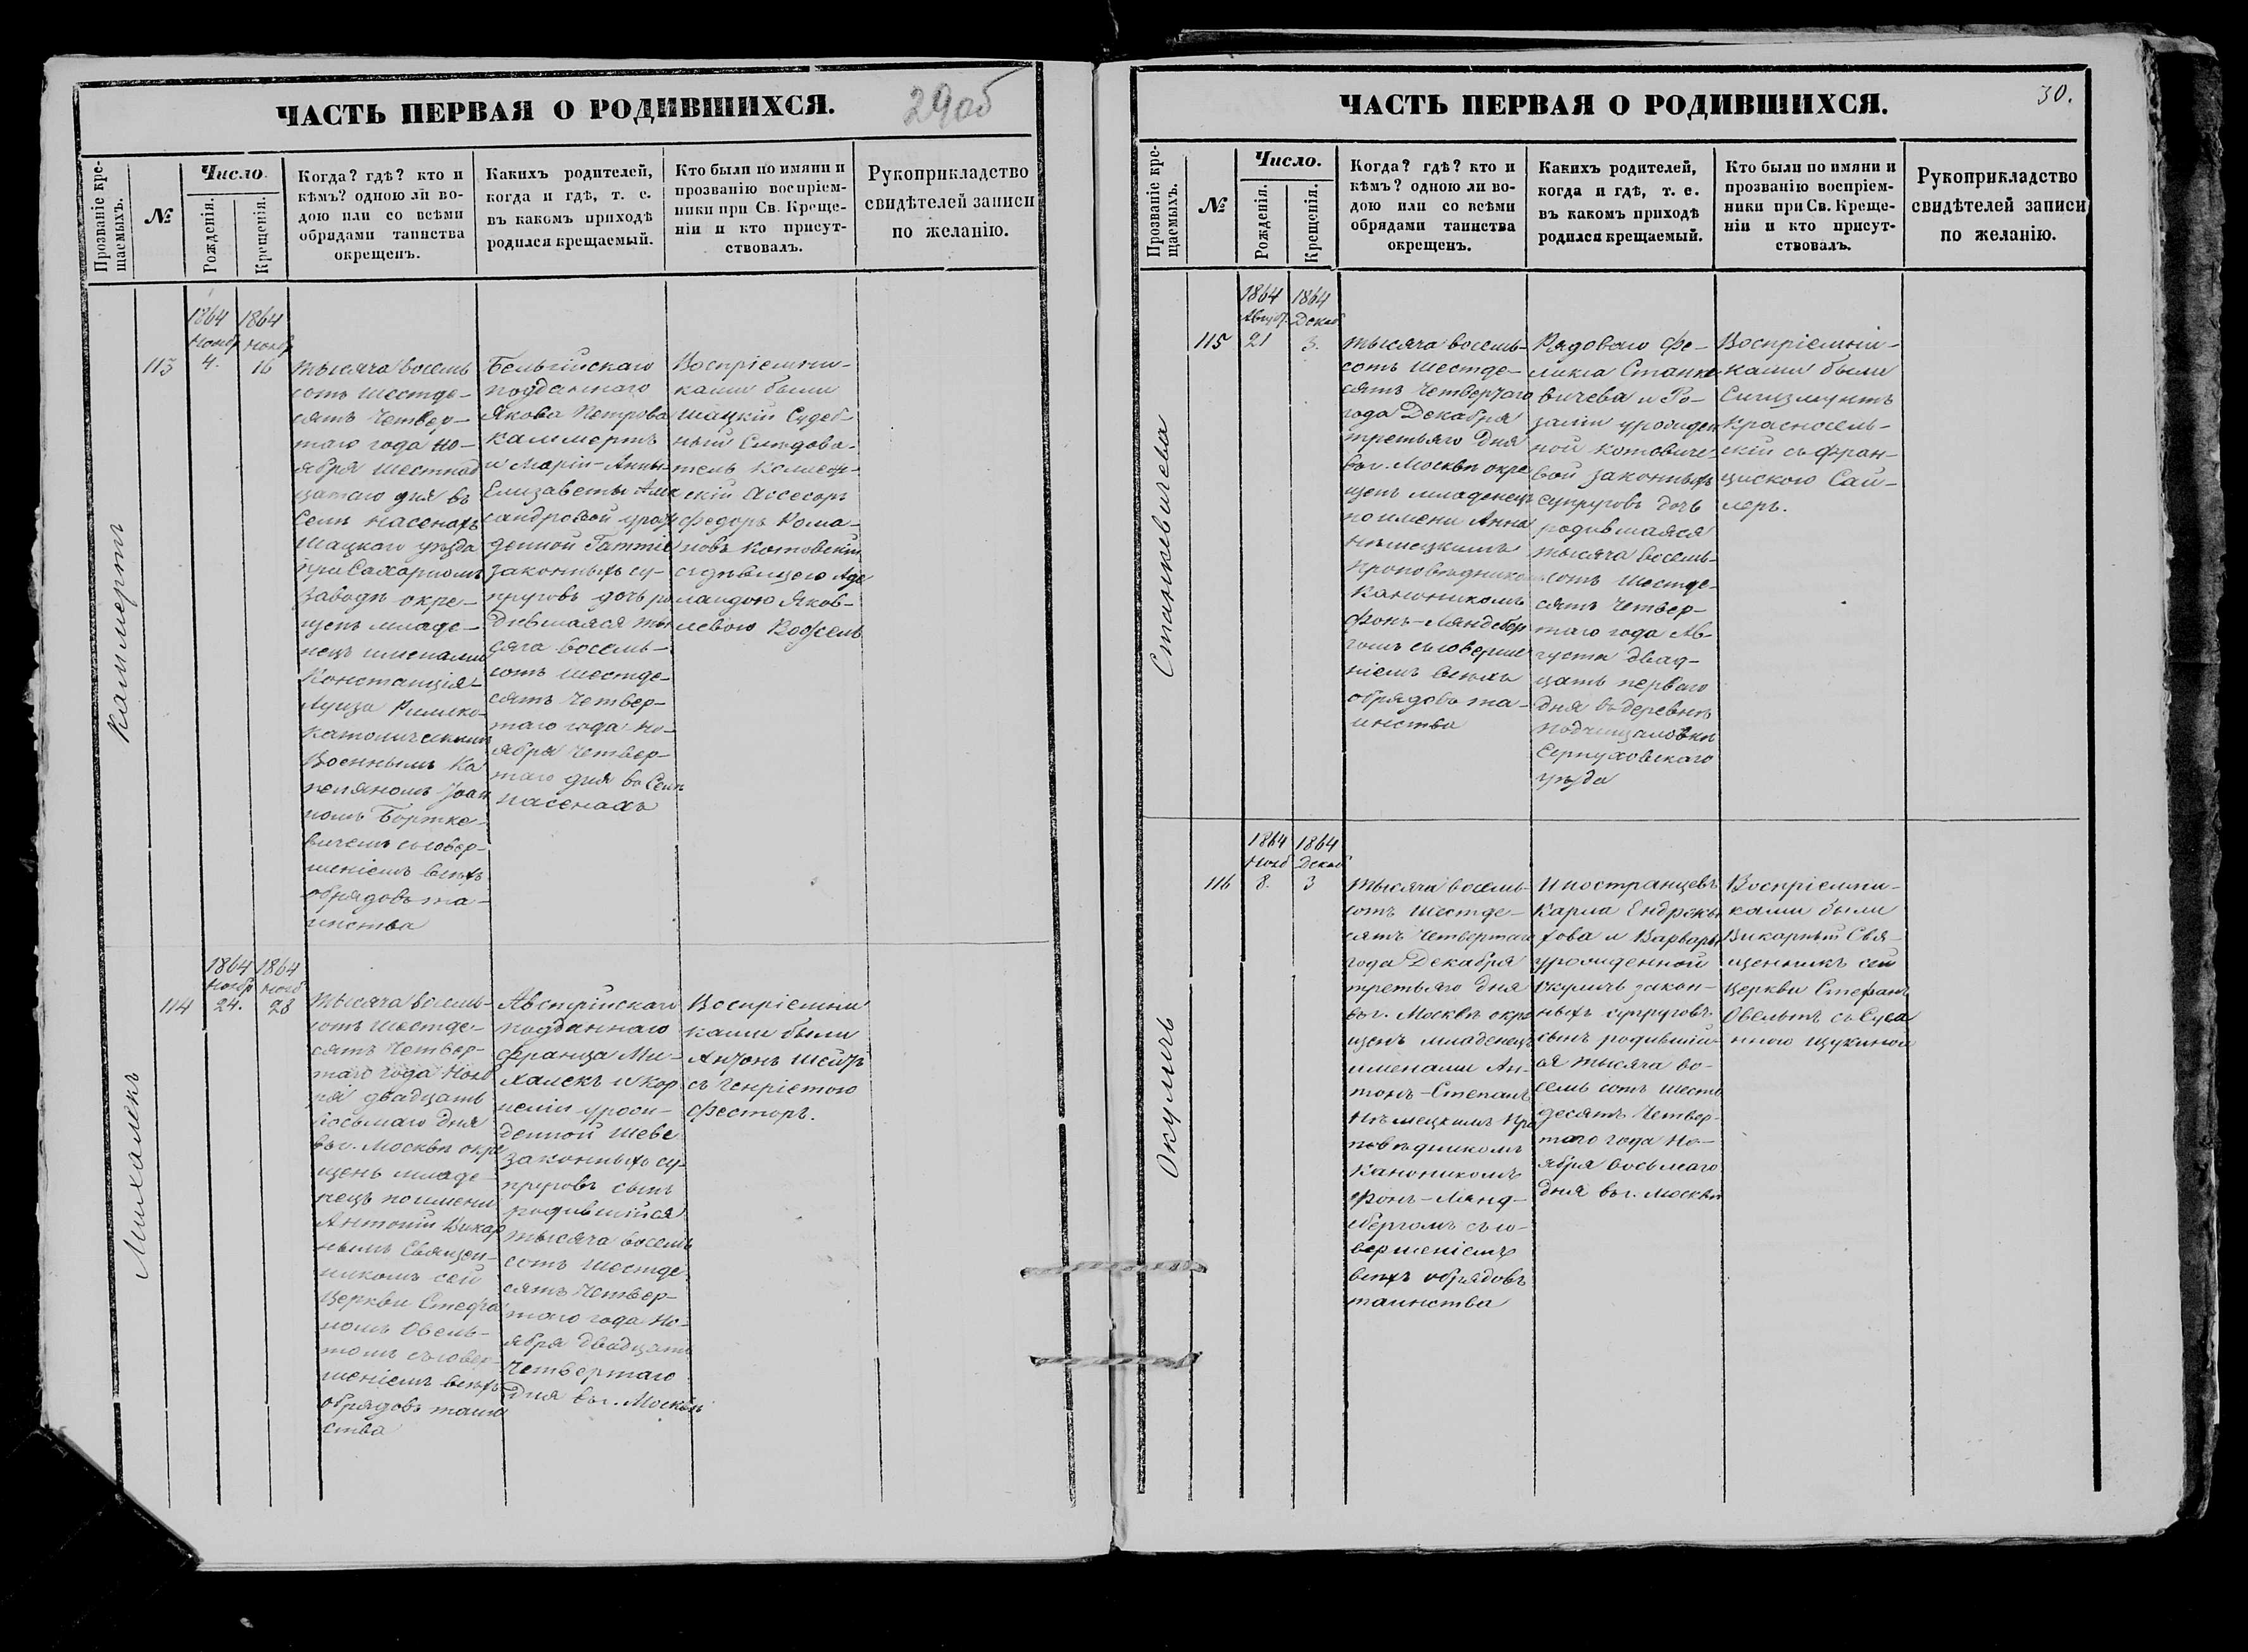 ЧАСТЬ ПЕРВАЯ О РОДИВШИХСЯ.
29об
Прозваніе кре-
щаемыхъ.
№
Число.
Рожденія.
Крещенія.
Когда? гдѣ? кто и
кѣмъ? одною ли во-
дою или со всѣми
обрядами таинства
окрещенъ.
Какихъ родителей,
когда и гдѣ, т. е.
въ какомъ приходѣ
родился крещаемый.
Кто были по имяни и
прозванію воспріем-
ники при Св. Креще-
ніи и кто присут-
ствовалъ.
Рукоприкладство
свидѣтелей записи
по желанію.
Каммертъ
113
1864
Ноябр
4.
1864
Ноябр
16
Тысяча восемь
сотъ шестде-
сятъ четвер-
таго года Но-
ября шестнад
цатаго дня въ
Селѣ Насенахъ
Шацкаго уѣзда
при Сахарномъ
заводѣ окре-
щенъ младе-
нецъ именами
Констанція-
Луиза Римско-
католическимъ
Военнымъ Ка
пеляномъ Іоан
номъ Бортке-
вичемъ съ совер-
шеніемъ всѣхъ
обрядовъ та-
инства
Бельгійскаго
подданнаго
Якова Петрова
Каммертъ
и Маріи-Анны-
Елизаветы Алек
сандровой урож
денной
законныхъ су-
пруговъ дочь ро
дившаяся ты
сяча восемь-
сотъ шестде-
сятъ четвер-
таго года Но-
ября четвер-
таго дня въ Селѣ
Насенахъ
Воспріемни-
ками были
Шацкій Судеб-
ный Слѣдова-
тель Коллеж-
скій Ассесоръ
Федоръ Рома-
новъ Котовскій
съ дѣвицею Аде
лаидою Яков-
левою
Михалекъ
114
1864
Ноябр
24.
1864
Нояб
28
Тысяча восемь-
сотъ шестде-
сятъ четвер-
таго года Нояб
ря двадцать
восьмаго дня
въ г. Москвѣ окре
щенъ младе-
нецъ по имени
Антоній Викар
нымъ Священ-
никомъ сей
Церкви Стефа
номъ Овель-
томъ съ совер-
шеніемъ всѣхъ
обрядовъ таин
ства
Австрійскаго
подданнаго
Франца Ми-
халекъ и Кор
неліи урож-
денной Шеве
законныхъ су-
пруговъ сынъ
родившійся
тысяча восемь
сотъ шестде
сятъ четвер-
таго года Но-
ября двадцать
четвертаго
дня въ г. Москвѣ
Воспріемни
ками были
Антонъ Шейтъ
съ Генріетою
Фесторъ.
ЧАСТЬ ПЕРВАЯ О РОДИВШИХСЯ.
30.
Прозваніе кре-
щаемыхъ.
№
Число.
Рожденія.
Крещенія.
Когда? гдѣ? кто и
кѣмъ? одною ли во-
дою или со всѣми
обрядами таинства
окрещенъ.
Какихъ родителей,
когда и гдѣ, т. е.
въ какомъ приходѣ
родился крещаемый.
Кто были по имяни и
прозванію воспріем-
ники при Св. Креще-
ніи и кто присут-
ствовалъ.
Рукоприкладство
свидѣтелей записи
по желанію.
Станкевичева
115
1864
Август.
21
1864
Декаб
3.
Тысяча восемь-
сотъ шестде-
сятъ четвертаго
года Декабря
третьяго дня
въ г. Москвѣ окре
щенъ младенецъ
по имени Анна
Нѣмецкимъ
проповѣдникомъ
Каноникомъ
Фонъ-Ляндсбер
гомъ съ соверше
ніемъ всѣхъ
обрядовъ та-
инства
Рядоваго Фе-
ликса Станке
вичева и Ро-
заліи урожден
ной Котовиче-
вой законныхъ
супруговъ дочь
родившаяся
тысяча восемь-
сотъ шестде-
сятъ четвер-
таго года Ав-
густа двад-
цать перваго
дня въ деревнѣ
Серпуховскаго
уѣзда
Воспріемни-
ками были
Сигизмунтъ
Красносель-
скій съ Фран-
цискою Сай-
леръ.
Окуличъ
116
1864
Нояб
8.
1864
Декаб
3
Тысяча восемь-
сотъ шестде-
сятъ четвертаго
года Декабря
третьяго дня
въ г. Москвѣ окре
щенъ младенецъ
именами Ан-
тонъ-Степанъ
Нѣмецкимъ Про
повѣдникомъ
Каноникомъ
Фонъ-Лянд-
сбергомъ съ со-
вершеніемъ
всѣхъ обрядовъ
таинства
Иностранцевъ
Карла
и Варвары
урожденной
Окуличъ закон-
ныхъ супруговъ
сынъ родивший-
ся тысяча во-
семь сотъ шесть
десятъ четвер-
таго года Но-
ября восьмаго
дня въ г. Москвѣ
Воспріемни-
ками были
Викарный Свя-
щенникъ сей
Церкви Стефанъ
Овельтъ съ Суса
нною Щукиною